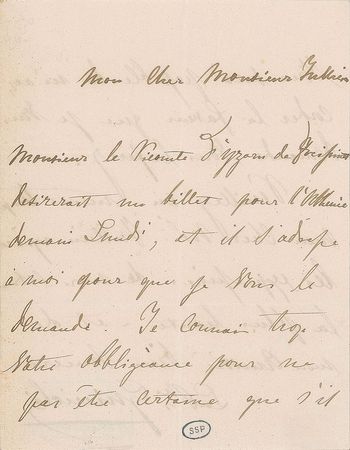 Mon Cher Monsieur Jullien
Monsieur le Vicomte d'Yzarn de Freissinet
desirerait un billet pour l'Athénée
demain Lundi, et il s'adresse
a moi pour que je vous le
demande. Je connais trop
votre obbligeance pour ne
pas être certaine que s'il
SSP